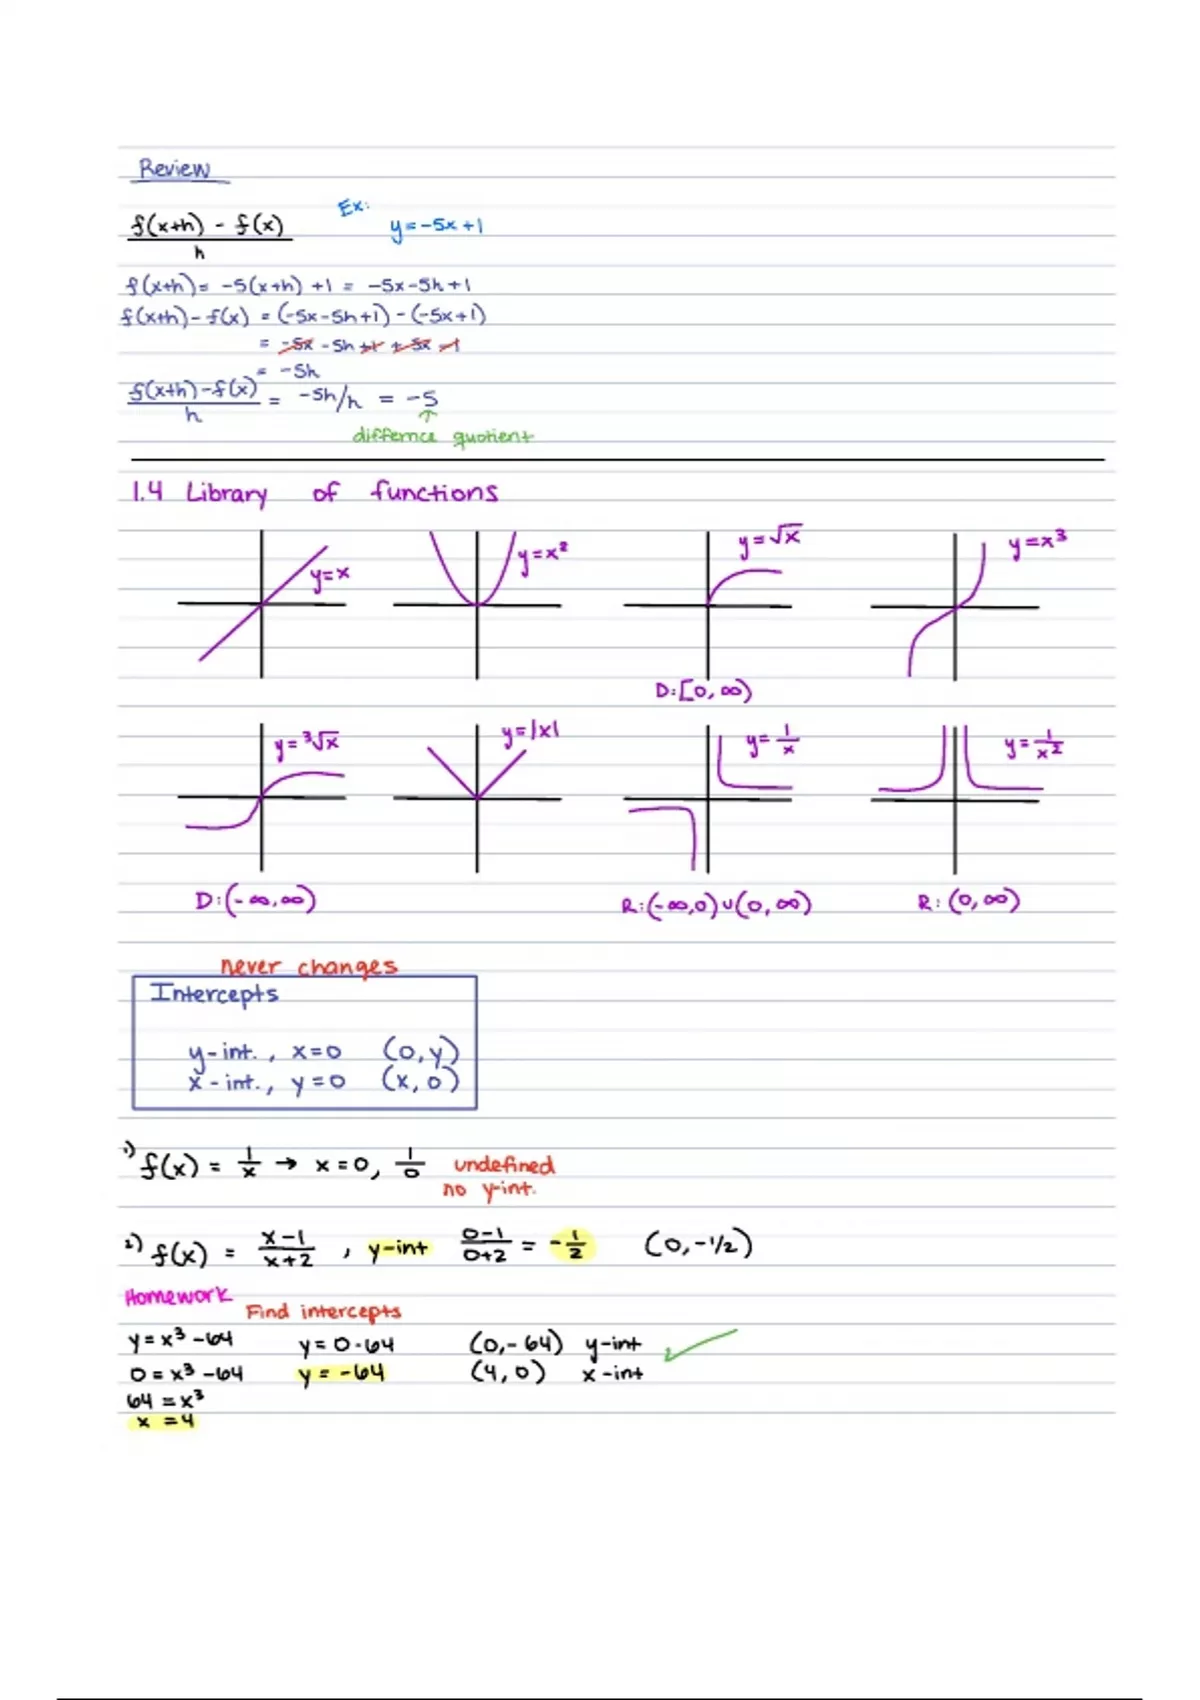 Review
f(x+h) - f(x)
h
Ex:
y=-5x+1
f(x+h)= -5(x+h) +1 = -5x-5h+1
f(x+h)- f(x) = (-5x-5h+1)-(-5x+1)
= -5x -5h +1 +5x -1
= -5h
f(x+h)-f(x) = -5h/h = -5
h
↑
differnce quotient
1.4 Library of functions
y=x
y=x²
y=√x
y=x³
D:[0,∞)
y=³√x
y=|x|
y= 1/x
y= 1/x²
D:(-∞,∞)
R:(-∞,0)∪(0,∞)
R: (0,∞)
never changes
Intercepts
y-int., x=0 (0,y)
x-int., y=0 (x,0)
1) f(x) = 1/x → x=0, 1/0 undefined
no y-int.
2) f(x) = x-1/x+2 , y-int 0-1/0+2 = -1/2 (0,-1/2)
Homework
Find intercepts
y=x³-64 y=0-64 (0,-64) y-int ✓
0=x³-64 y=-64 (4,0) x-int
64=x³
x=4